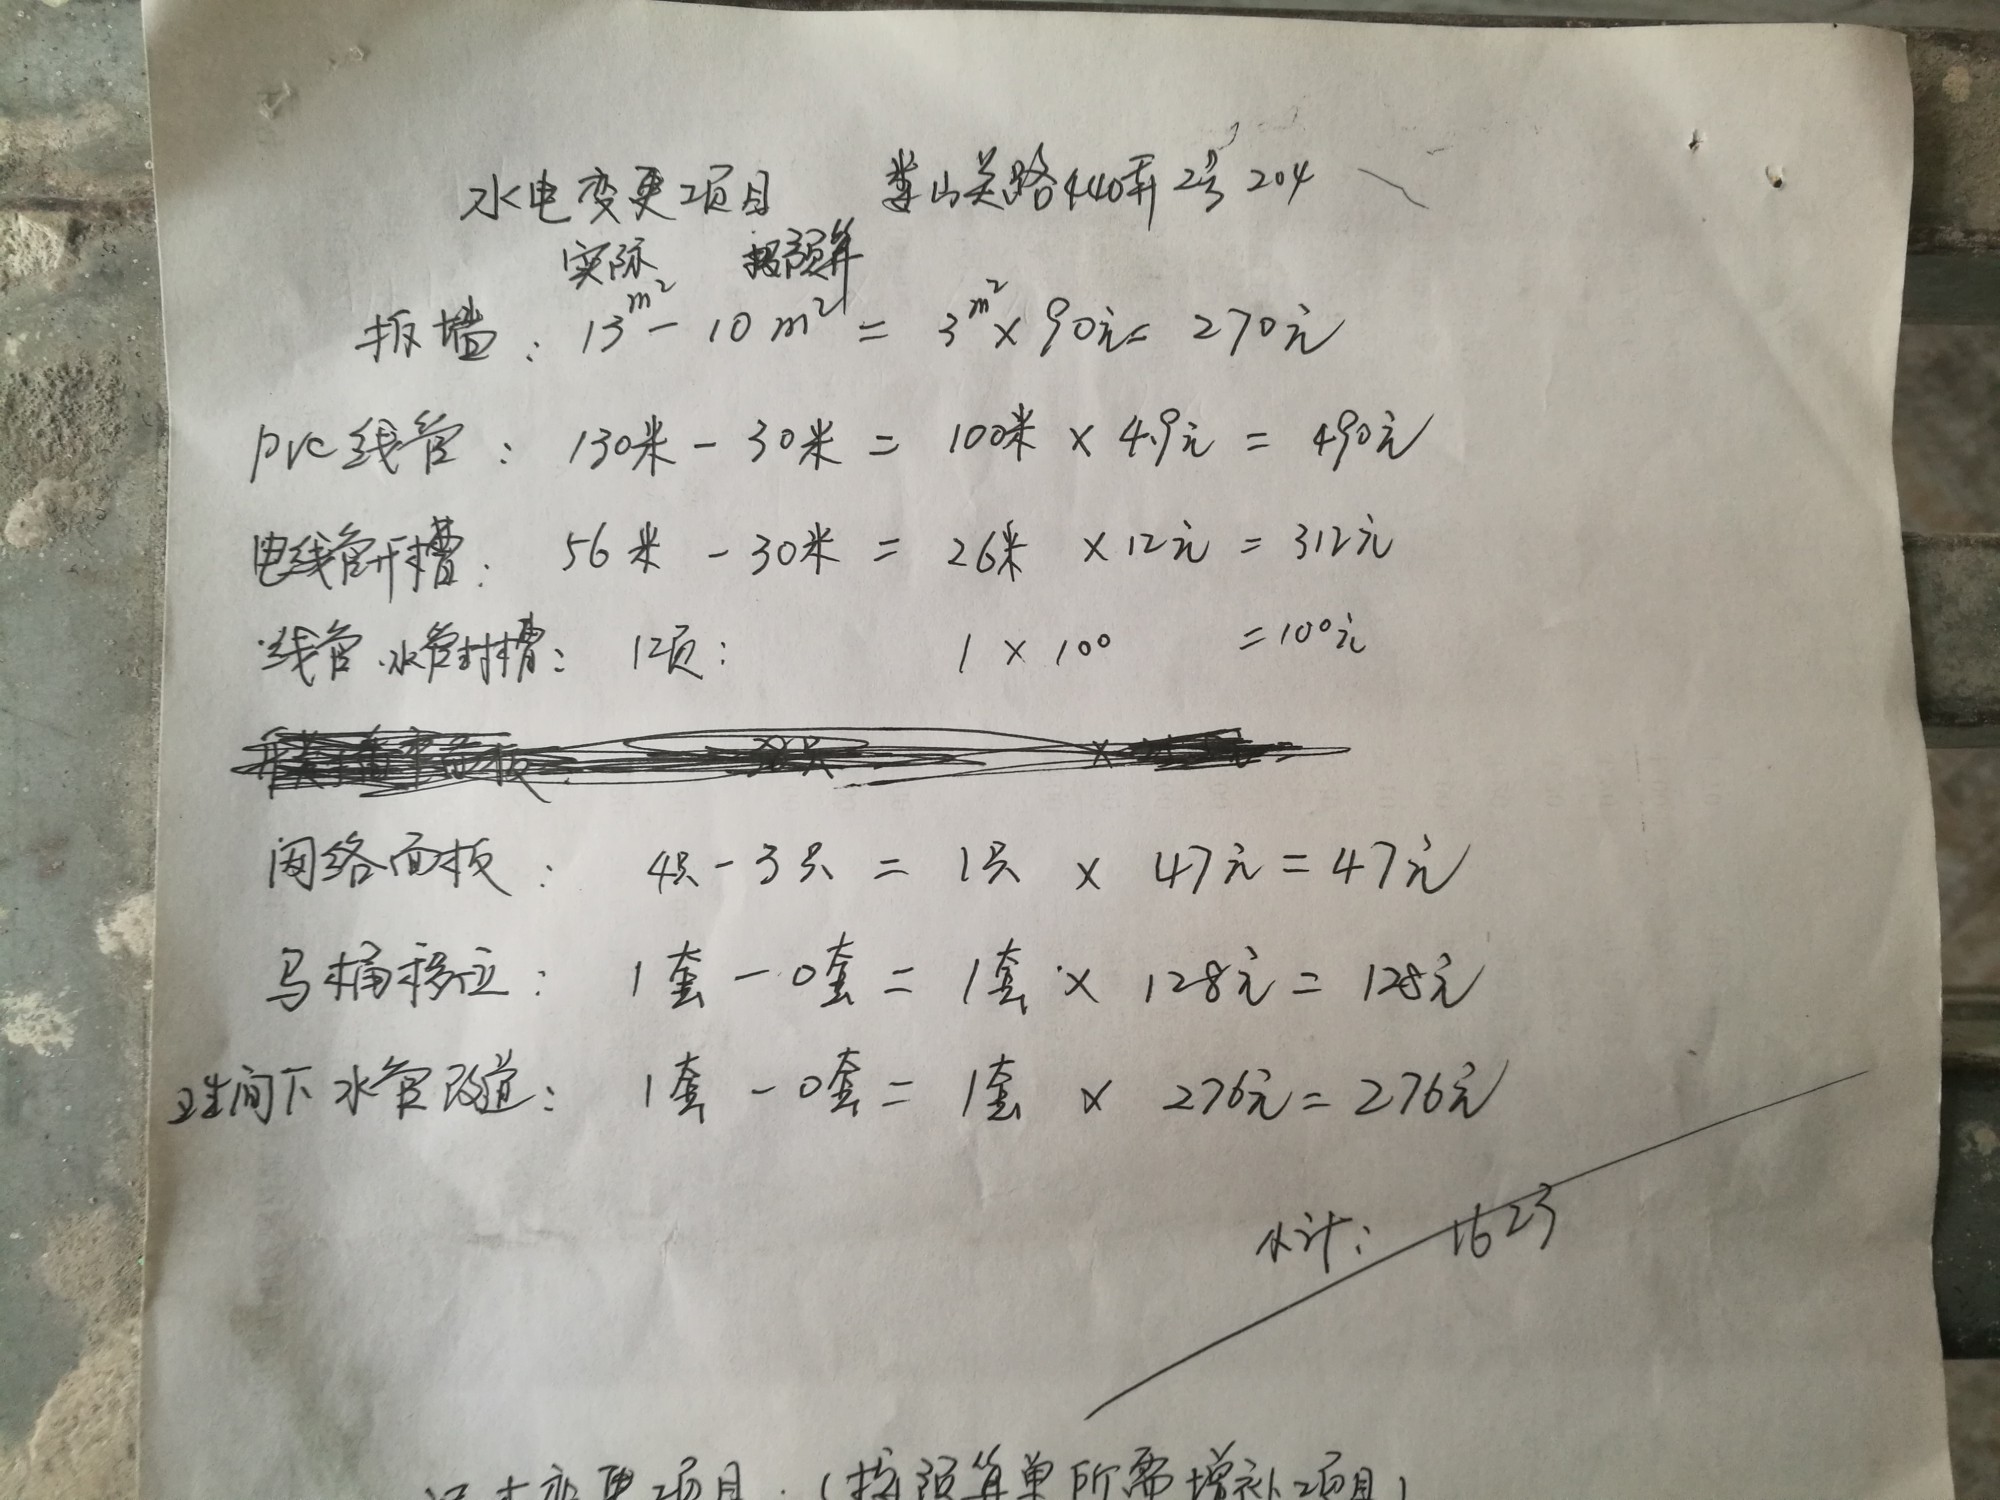 水电变更项目 娄山关路440弄2号204
实际 预算
拆墙: 13m² - 10m² = 3m² × 90元 = 270元
PVC线管: 130米 - 30米 = 100米 × 4.9元 = 490元
电线管开槽: 56米 - 30米 = 26米 × 12元 = 312元
线管.水管封槽: 1项: 1 × 100 = 100元
网络面板: 4只 - 3只 = 1只 × 47元 = 47元
马桶移位: 1套 - 0套 = 1套 × 128元 = 128元
卫生间下水管改道: 1套 - 0套 = 1套 × 276元 = 276元
小计: 1623
变更项目.(按预算单所需增补项目)